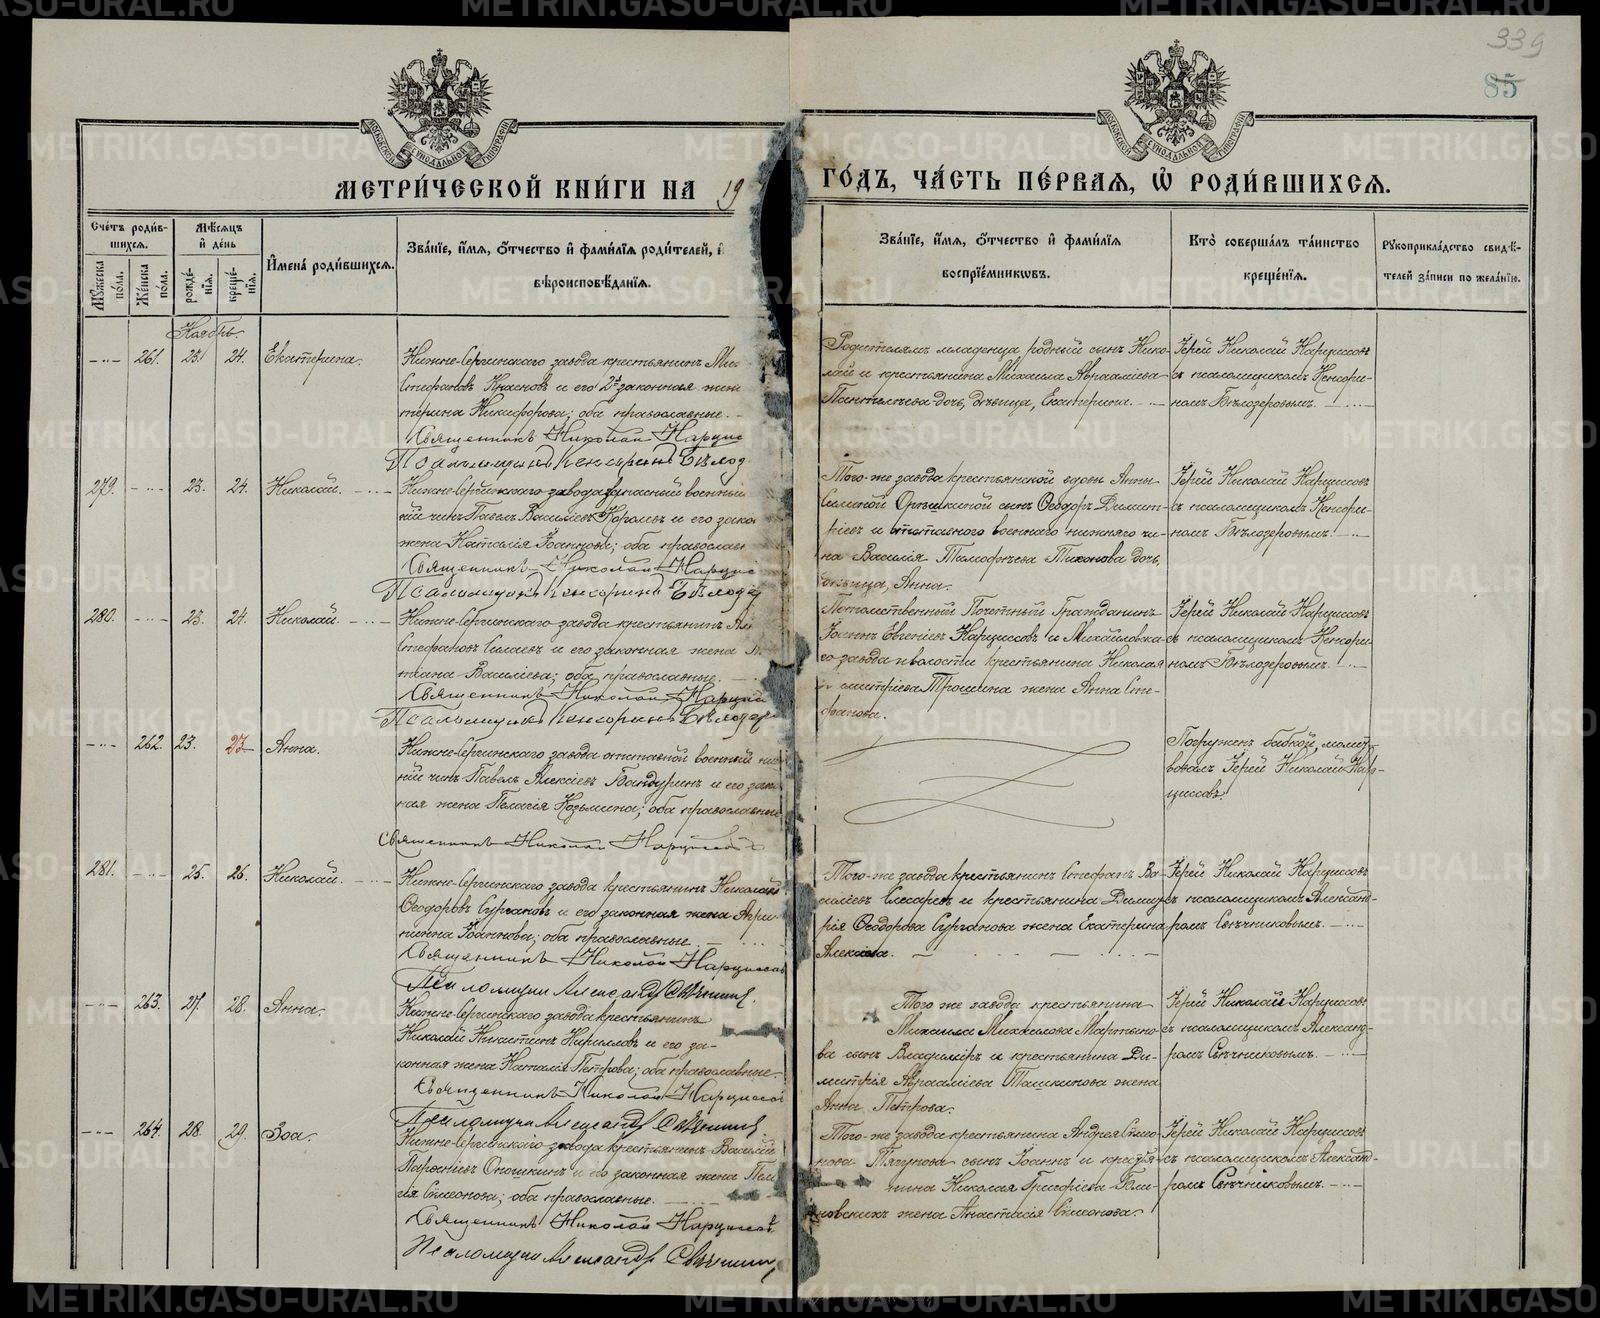 339
85
МОСКОВСКОЙ СѴНОДАЛЬНОЙ ТИПОГРАФІИ
МОСКОВСКОЙ СѴНОДАЛЬНОЙ ТИПОГРАФІИ
МЕТРИ́ЧЕСКОЙ КНИ́ГИ НА 19
ГО́ДЪ, ЧА́СТЬ ПЕ́РВАЯ, Ѡ҆ РОДИ́ВШИХСѦ.
Сче́тъ роди́в-
шихсѧ.
Мꙋжеска по́ла.
Же́нска по́ла.
Мѣ́сѧцъ
и҆ де́нь
рожде́-
нїѧ.
креще́-
нїѧ.
И҆мена̀ роди́вшихсѧ.
Зва́нїе, и҆́мѧ, ѻ҆́тчество и҆ фами́лїѧ роди́телей, и҆
вѣроисповѣ́данїѧ.
Зва́нїе, и҆́мѧ, ѻ҆́тчество и҆ фами́лїѧ
воспрїе́мникѡвъ.
Кто̀ соверша́лъ та́инство
креще́нїѧ.
Рꙋкоприкла́дство свидѣ́-
телей за́писи по жела́нїю.
Ноябрь.
261. 23. 24. Екатерина.
Нижне-Сергинскаго завода крестьянинъ Ми-
Стефановъ Красновъ и его 2я законная жен
терина Никифорова; оба православные.
Священникъ Николай Нарцис
Псаломщикъ Кенсоринъ Бѣлоз
Родителямъ младенца родный сынъ Нико-
лай и крестьянина Михаила Авраамiева
Пантелѣева дочь, дѣвица, Екатерина.
Іерей Николай Нарциссовъ
съ псаломщикомъ Кенсори-
номъ Бѣлозеровымъ.
279. 23. 24. Николай.
Нижне-Сергинскаго завода запасный военный
ній чинъ Павелъ Василіевъ Королевъ и его зако
жена Наталія Іоаннова; оба православн
Священникъ Николай Нарцис
Псаломщикъ Кенсоринъ Бѣлозер
Того-же завода крестьянской вдовы Анны
сынъ Ѳеодоръ Димит-
ріевъ и отставного военнаго нижняго чи-
на Василія Тимоѳѣева Тихонова дочь,
дѣвица, Анна.
Іерей Николай Нарциссовъ
съ псаломщикомъ Кенсори-
номъ Бѣлозеровымъ.
280. 23. 24. Николай.
Нижне-Сергинскаго завода крестьянинъ
Стефановъ Силаевъ и его законная жена
тіана Василіева; оба православные.
Священникъ Николай Нарцис
Псаломщикъ Кенсоринъ Бѣлозер
Потомственный Почетный Гражданинъ
Іоаннъ Евгеніевъ Нарциссовъ и Михайловска-
го завода и волости крестьянина Николая
Димитріева Трошина жена Анна Сте-
фанова.
Іерей Николай Нарциссовъ
съ псаломщикомъ Кенсори-
номъ Бѣлозеровымъ.
262. 23. 23 Анна.
Нижне-Сергинскаго завода отставной военный ниж
ній чинъ Павелъ Алексіевъ Бандуринъ и его закон
ная жена Пелагія Козьмина; оба православные
Священникъ Николай Нарциссовъ
Погруженъ бабкой, молит
вовалъ Іерей Николай Нар-
циссовъ.
281. 25. 26. Николай.
Нижне-Сергинскаго завода крестьянинъ Николай
Ѳеодоровъ Сургановъ и его законная жена Агри-
пина Іоаннова; оба православные.
Священникъ Николай Нарциссов
Псаломщикъ Александръ Свѣчник
Того-же завода крестьянинъ Стефанъ Ва-
силіевъ Слесаревъ и крестьянина Димит-
рія Ѳеодорова Сурганова жена Екатерина
Алексіева.
Іерей Николай Нарциссовъ
съ псаломщикомъ Александ-
ромъ Свѣчниковымъ.
263. 27. 28. Анна.
Нижне-Сергинскаго завода крестьянинъ
Николай Никитинъ Кирилловъ и его за-
конная жена Наталія Петрова; оба православные.
Священникъ Николай Нарциссов
Псаломщикъ Александръ Свѣчник
Того же завода крестьянина
Михаила Михайлова Мартьяно-
ва сынъ Владиміръ и крестьянина Ди-
митрія Авраамiева Ташкинова жена
Анна Петрова.
Іерей Николай Нарциссовъ
съ псаломщикомъ Александ-
ромъ Свѣчниковымъ.
264. 28. 29. Зоа.
Нижне-Сергинскаго завода крестьянинъ Василій
Парѳеніевъ Опошкинъ и его законная жена Пела
гія Симеонова; оба православные.
Священникъ Николай Нарциссов
Псаломщикъ Александръ Свѣчник
Того-же завода крестьянина Андрея Симео-
нова Тягунова сынъ Іоаннъ и крестья-
нина Николая Григоріева
жена Анастасія Симеонова.
Іерей Николай Нарциссовъ
съ псаломщикомъ Александ-
ромъ Свѣчниковымъ.
METRIKI.GASO-URAL.RU